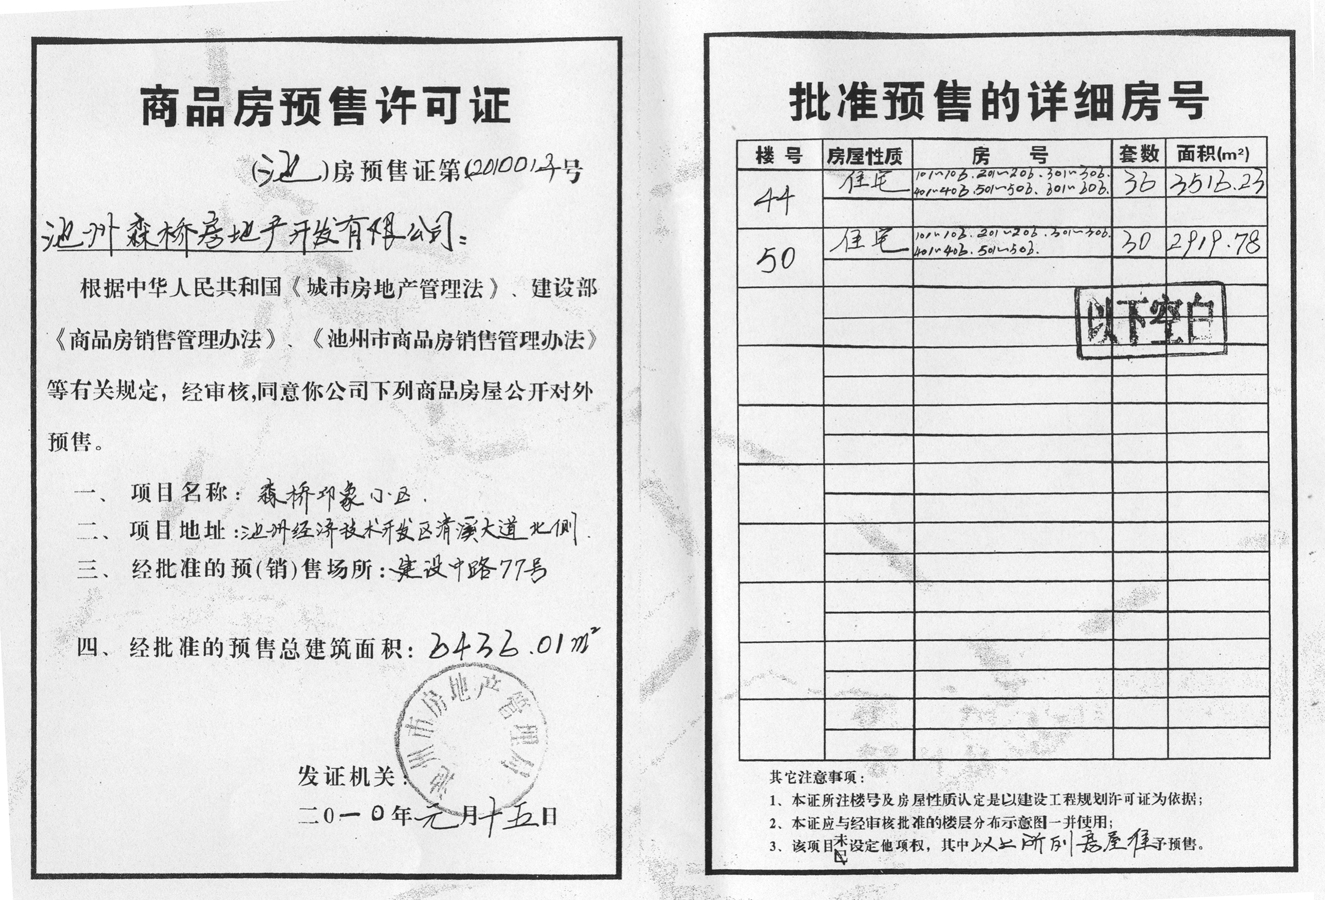 商品房预售许可证
(池)房预售证第(2010013号
池州森桥房地产开发有限公司:
根据中华人民共和国《城市房地产管理法》、建设部
《商品房销售管理办法》、《池州市商品房销售管理办法》
等有关规定，经审核,同意你公司下列商品房屋公开对外
预售。
一、项目名称：森桥印象小区.
二、项目地址:池州经济技术开发区清溪大道北侧.
三、经批准的预(销)售场所:建设中路77号
四、经批准的预售总建筑面积：6436.01m²
池州市房地产管理局
发证机关:
二0一0年元月十五日
批准预售的详细房号
楼号 房屋性质 房号 套数 面积(m²)
44 住宅 101~106.201~206.301~306. 36 3516.23
401~406.501~506.601~606.
50 住宅 101~106.201~206.301~306. 30 2919.78
401~406.501~506.
以下空白
其它注意事项：
1、本证所注楼号及房屋性质认定是以建设工程规划许可证为依据；
2、本证应与经审核批准的楼层分布示意图一并使用；
3、该项目未已设定他项权，其中以上所列房屋准予预售。